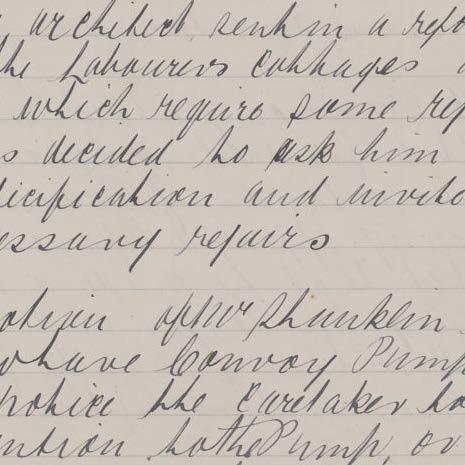 , architect, sent in a repo
the Labourers Cottages
which require some rep
s decided to ask him
ecification and invite
essary repairs
otion of Mr Shanklin
to have Convoy Pump
notice the Caretaker to
ention to the Pump, or